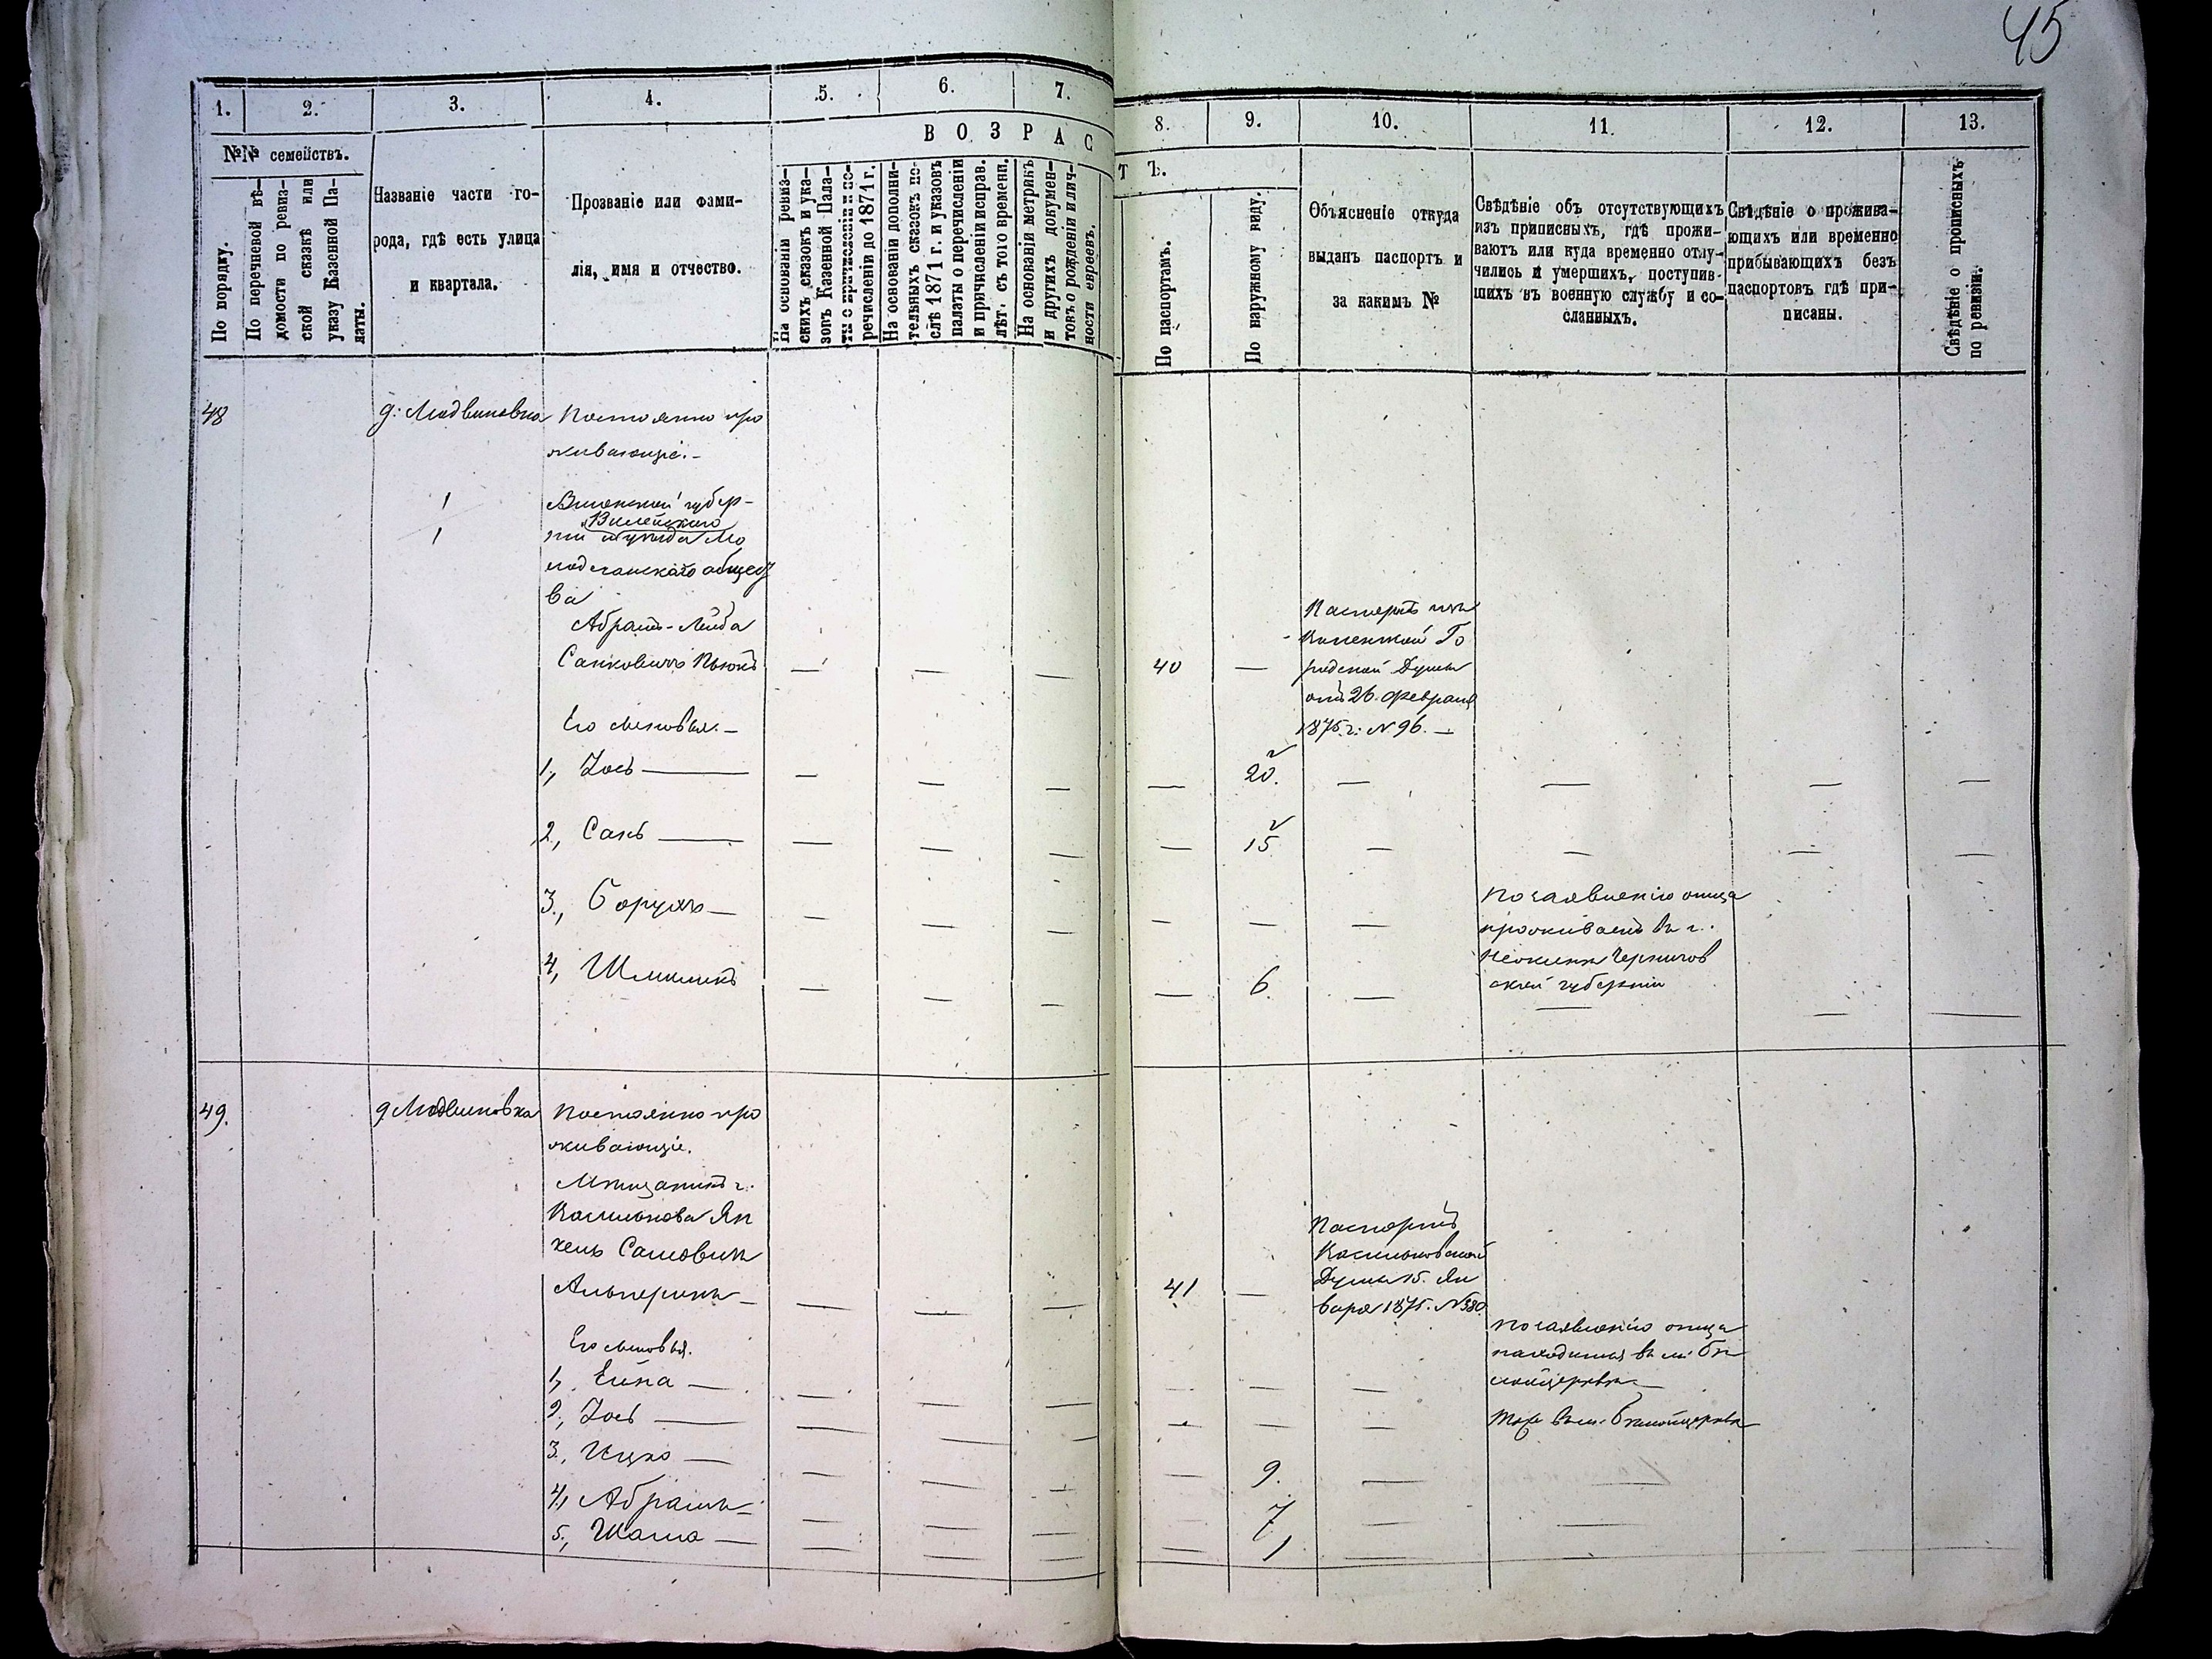 45
1.
2.
3.
4.
5.
6.
7.
8.
9.
10.
11.
12.
13.
№№ семействъ.
ВОЗРАСТЪ.
По порядку.
По перечневой вѣ-
домости по ревиз-
ской сказкѣ или
указу Казенной Па-
латы.
Названіе части го-
рода, гдѣ есть улица
и квартала.
Прозваніе или фами-
лія, имя и отчество.
На основаніи ревиз-
скихъ сказокъ и ука-
зовъ Казенной Пала-
ты о причисленіи и пе-
речисленіи до 1871 г.
На основаніи дополни-
тельныхъ сказокъ по-
слѣ 1871 г. и указовъ
палаты о перечисленіи
и причисленіи исправ.
лѣт. съ того времени.
На основаніи метрикъ
и другихъ докумен-
товъ о рожденіи и лич-
ности евреевъ.
По паспортамъ.
По наружному виду.
Объясненіе откуда
выданъ паспортъ и
за какимъ №
Свѣдѣніе объ отсутствующихъ
изъ приписныхъ, гдѣ прожи-
ваютъ или куда временно отлу-
чились и умершихъ, поступив-
шихъ въ военную службу и со-
сланныхъ.
Свѣдѣніе о прожива-
ющихъ или временно
прибывающихъ безъ
паспортовъ гдѣ при-
писаны.
Свѣдѣніе о прописныхъ
по ревизіи.
48
д: Людвиновка
Постоянно про
живающіе.-
1
1
Виленской губер-
Вилейскаго
ніи уѣзда Мо
лодечанскаго общест
ва
Абрамъ-Лейба
Санковичъ
40
Паспортъ изъ
Виленской Го
родской Думы
отъ 26. Февраля
1875.г: № 96. —
Его сыновья. —
1, Іось —
20.
2, Сакъ —
15
3, Борухъ —
По заявленію отца
проживаетъ въ г.
Нежинѣ Чернигов
ской губерніи
4, Шмиликъ
6.
49.
д. Людвиновка
Постоянно про
живающіе.
Мѣщанинъ г.
Василькова Ян
кель
Альперинъ —
41
Паспортъ
Васильковской
Думы 15. Ян
варя 1875. № 380.
Его сыновья.
По заявленію отца
находится въ м: Бѣ
лойцеркви —
1,
2, Іось —
Тоже въ м: Бѣлойцеркви
3, Ицко —
9.
4, Абрамъ —
7
5, —
1